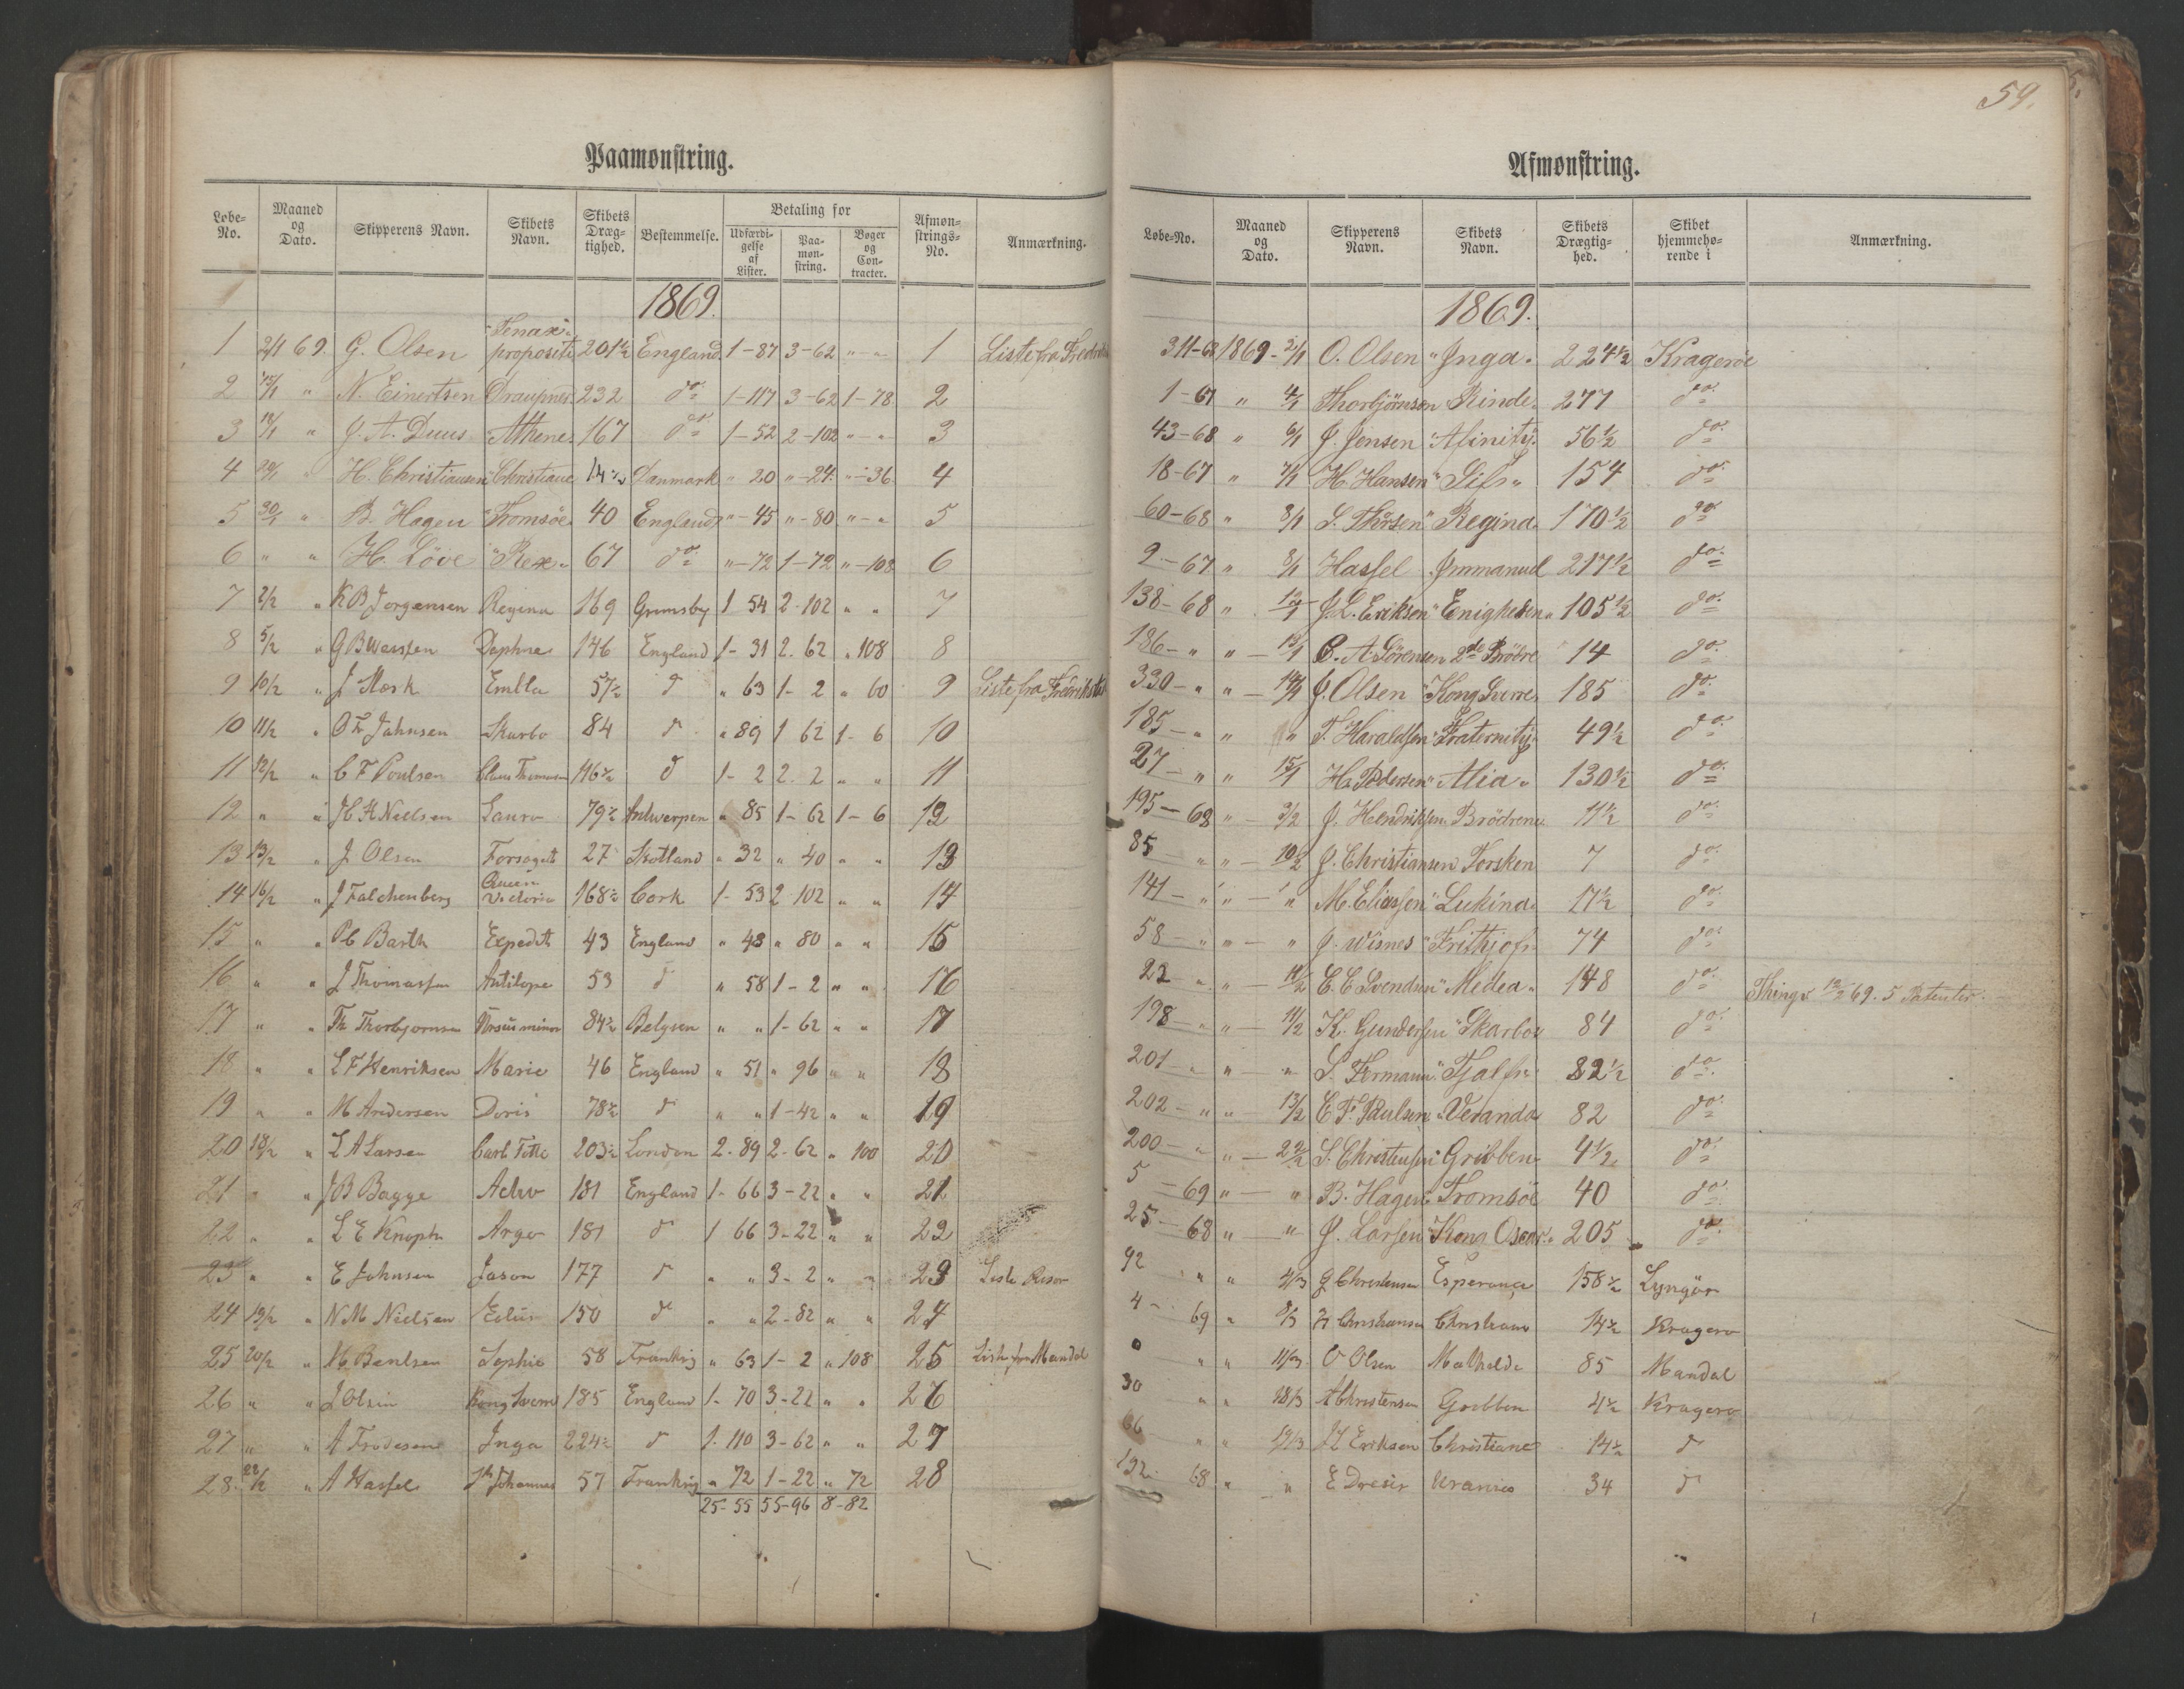 59.
Paamønstring.
Løbe-No. Maaned og Dato. Skipperens Navn. Skibets Navn. Skibets Dræg-tighed. Bestemmelse. Betaling for Udfærdi-gelse af Lister. Paa-møn-string. Bøger og Con-tracter. Afmøn-strings-No. Anmærkning.
1869.
1 2/1 69. G. Olsen "Tenax propositi 201½ England 1-87 3-62 "-" 1 Liste fra
2 15/1 " N. Einertsen Draupner 232 do 1-117 3-62 1-78. 2
3 18/1 " J. A. Duus Athene 167 do 1-52 2-102 "-" 3
4 29/1 " H. Christiansen "Christiane 14½ Danmark " 20 "-24. "-36. 4
5 30/1 " B. Hagen Tromsöe 40 England "-45 "-80 "-" 5
6 " " H. Löve "Rex" 67 do "-72 1-72 "-108 6
7 2/2 " K B Jorgensen Regina 169 Grimsby 1 54 2-102 " " 7
8 5/2 " G B Wessen Daphne 146 England 1-31 2. 62 " 108 8
9 10/2 " J Mork Embla 57½ d " 63 1-2 " 60 9 Liste fra Fredrikstad
10 11/2 " O Jahnsen Skarbo 84 d " 89 1 62 1-6 10
11 12/2 " C F Poulsen Claus Thommesen 116½ d 1-2 2. 2 " " 11
12 " " H Nielsen Laura 79½ Antwerpen " 85 1-62 1-6 12
13 13/2 " J Olsen Forsøget 27 Skotland " 32 " 40 " " 13
14 16/2 " J Falchenberg Queen Victoria 168½ Cork 1-53 2 102 " " 14
15 " " Barth Expedit 43 England " 48 " 80 " " 15
16 " " J Thomassen Antilope 53 d " 58 1-2 " " 16
17 " " Th Thorbjornsen Ursus minor 84½ Belgien " " 1-62 " " 17
18 " " L F Henriksen Marie 46 England " 51 " 96 " " 18
19 " " M Andersen Doris 78½ d " " 1-42 " " 19
20 18/2 " L A Larsen Carl 203½ London 2-89 2-62 " 100 20
21 " " J B Bagge Activ 181 England 1-66 3-22 " " 21
22 " " L E Knoph Argo 181 d 1 66 3-22 " " 22
23 " " E Johnsen Jason 177 d " " 3-2 " " 23 Liste Risør
24 19/2 " N M Nielsen 150 d " " 2-82 " " 24
25 20/2 " Bentsen Sophie 58 Frankrig " 63 1-2 " 108 25 Liste fra Mandal
26 " " J Olsen Kong Sverre 185 England 1-70 3-22 " " 26
27 " " A Frodesen Inga 224½ d 1. 110 3-62 " " 27
28. 22/2 " A Hassel Johannes 57 Frankrig " 72 1-22 " 72 28
25-55 55-96 8-82
Afmønstring.
Løbe-No. Maaned og Dato. Skipperens Navn. Skibets Navn. Skibets Drægtig-hed. Skibet hjemmehø-rende i Anmærkning.
1869.
311-68 1869-2/1 O. Olsen "Inga" 224½ Kragerøe
1-67 " 4/1 Thorbjörnsen Rinde 277 do
43-68 " 6/1 J. Jensen "Afinity" 56½ do
18-67 " 7/1 H. Hansen "Sif" 154 do
60-68 " 8/1 S. Thorsen "Regina" 170½ do
9-67 " 8/1 Hassel Immanuel 217½ do
138-68 " 12/1 J. L. Eriksen "Enigheden" 105½ do
186-" " - 13/1 C. A. Sörensen 2de Brödre 14 do
330-" " - 14/1 J. Olsen "Kong Sverre 185 do
185-" " " T. Haraldsen Fraternity 49½ do
27-" " 15/1 H. Pedersen "Alia" 130½ do
195-68 " - 3/2 J. Hendriksen Brödrene 11½ do
85 " " - 10/2 J. Christiansen Torsken 7 do
141-" " - " M. Eliassen "Lukina" 17½ do
58-" " - " J. Wisnes "Frithjof" 74 do
22 " " - 11/2 C. E. Svendsen "Medea" 148 do Thinge 12/2 69. 5 Patenter.
198 " " - 11/2 K. Gundersen "Skarbo" 84 do
201 " " - " S. Fermann "Tjalf" 82½ do
202-" " 13/2 C. F. Paulsen "Veranda 82 do
200-" " - 22/2 S. Christensen "Gribben 4½ do
5-69 " - " B. Hagen Tromsöe 40 do
25-68 " - " J. Larsen "Kong Oscar" 205 do
92 " " 4/3 J Christensen Esperança 158½ Lyngör
4-69 " 8/3 H Christiansen Christiane 14½ Kragerø
0 " " 11/3 O Olsen Mathilde 85 Mandal
30 " " 18/3 A Christensen Gribben 4½ Kragerø
66 " " 19/3 Eriksen Christiane 14½ d
192 68 " " E Urania 34 d